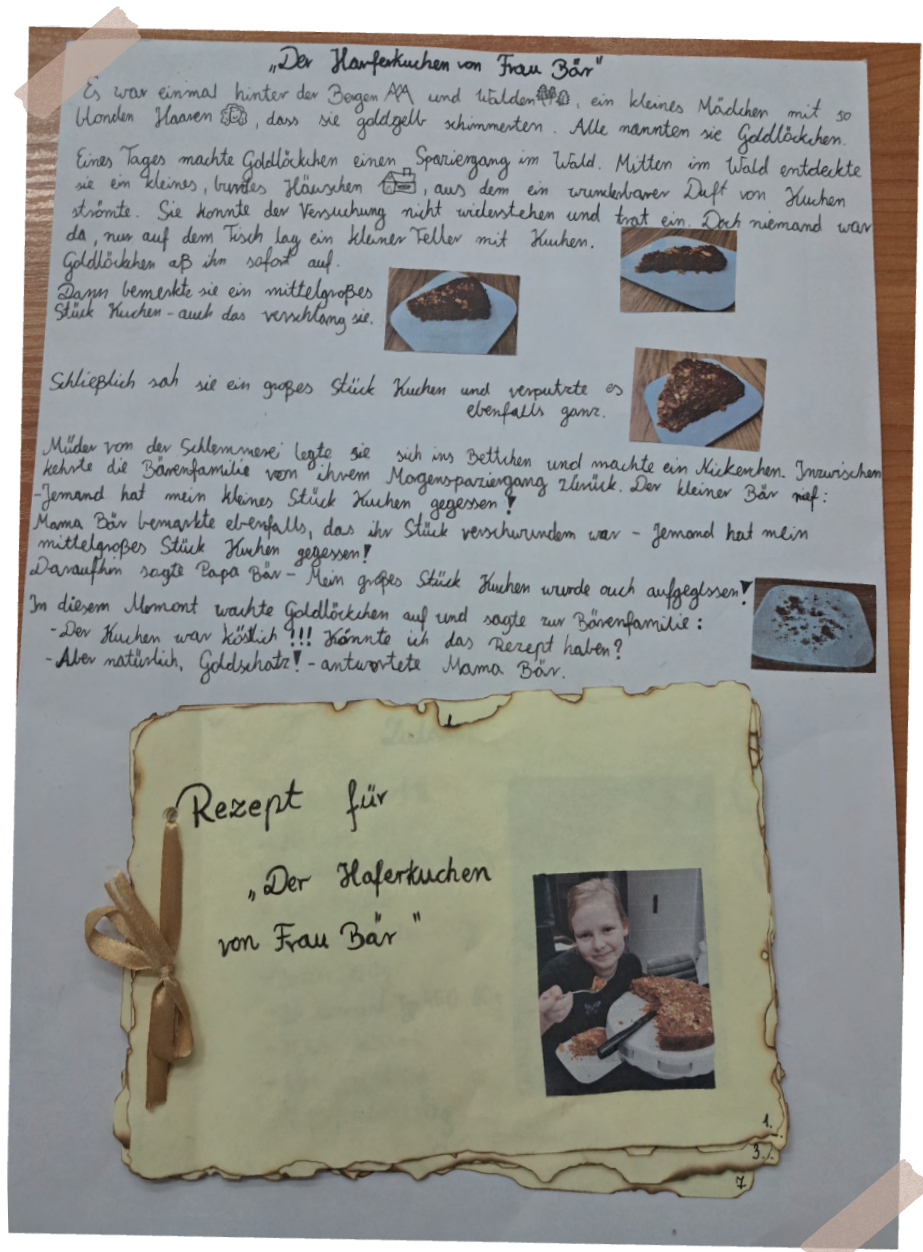 „Der Harferkuchen von Frau Bär"
Es war einmal hinter der Bergen und Walden, ein kleines Mädchen mit so
blonden Haaren, dass sie goldgelb schimmerten. Alle nannten sie Goldlöckchen.
Eines Tages machte Goldlöckchen einen Spaziergang im Wald. Mitten im Wald entdeckte
sie ein kleines, buntes Häuschen, aus dem ein wunderbarer Duft von Kuchen
strömte. Sie konnte der Versuchung nicht widerstehen und trat ein. Doch niemand war
da, nur auf dem Tisch lag ein kleiner Teller mit Kuchen.
Goldlöckchen aß ihn sofort auf.
Dann bemerkte sie ein mittelgroßes
Stück Kuchen - auch das verschlang sie.
Schließlich sah sie ein großes Stück Kuchen und verputzte es
ebenfalls ganz.
Müder von der Schlemmerei legte sie sich ins Bettchen und machte ein Nickerchen. Inzwischen
kehrte die Bärenfamilie von ihrem Morgenspaziergang zurück. Der kleiner Bär rief:
-Jemand hat mein kleines Stück Kuchen gegessen!
Mama Bär bemarkte ebenfalls, das ihr Stück verschwundem war - Jemand hat mein
mittelgroßes Stück Kuchen gegessen!
Daraufhin sagte Papa Bär - Mein großes Stück Kuchen wurde auch aufgeglssen!
In diesem Momont wachte Goldlöckchen auf und sagte zur Bärenfamilie:
-Der Kuchen war köstlich!!! Könnte ich das Rezept haben?
-Aber natürlich, Goldschatz! - antwortete Mama Bär.
Rezept für
„Der Haferkuchen
von Frau Bär"
1.
3.
7.